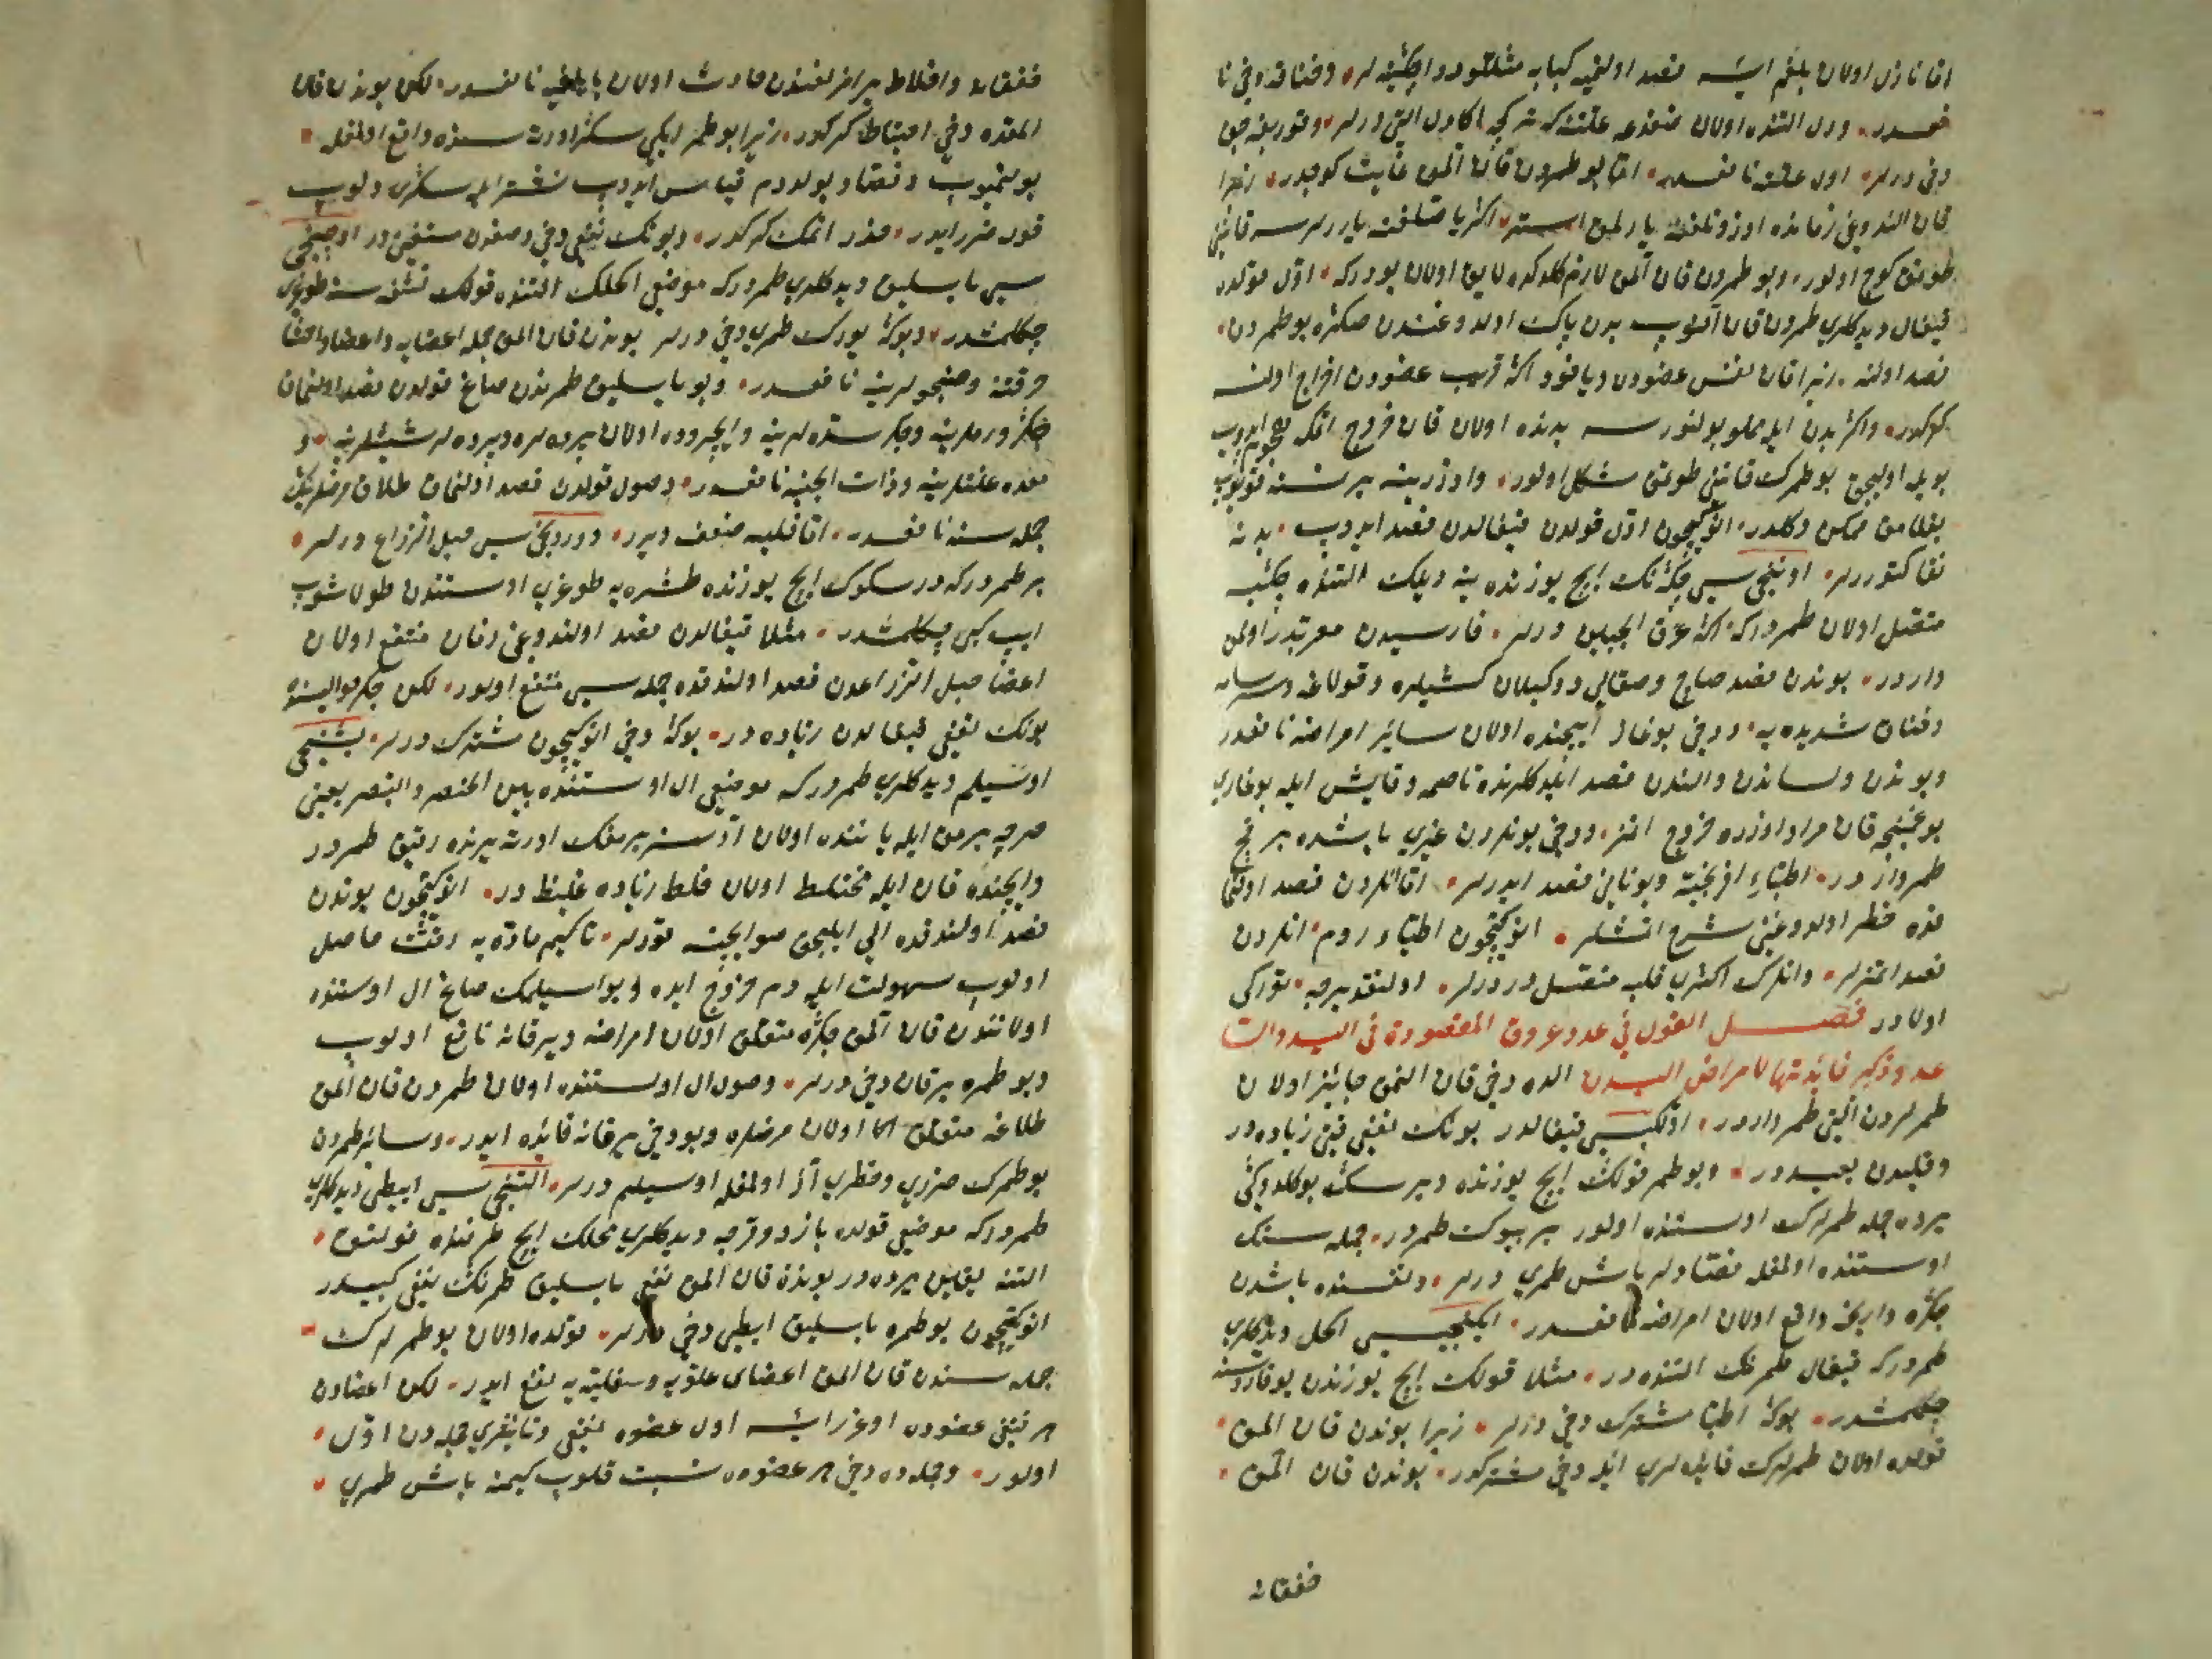 اكا نازل اولان بلغم ايسه فصد اولنيه كبابه مثللو دوا چكنيه لر وخناقه دخي نا
فعدر ودل التنده اولان ضفدعه علتنه كه تركجه اكا دل التي درلر وقوربغه جق
دخي درلر اول علته نافعدر اما بو طمردن قان المق غايت كوجدر زيرا
قان الندوغي زمانده اوزونلغنه يارلمق استر اكر يا صلغنه يارلرسه قانيني
طوتمق كوج اولور وبو طمردن قان المق لازم كلدكده لايق اولان بودركه اول قولده
قيفال ديدكلري طمردن قان النوب بدن پاك اولدوغندن صكره بو طمردن
فصد اولنه زيرا قان نفس عضودن وياخود اكا قريب عضودن اخراج اولنسه
كركدر واكر بدن ايله مملو بولنورسه بدنده اولان قان خروج اتمكه هجوم ايدوب
بويله اوليجق بو طمرك قانيني طوتمق مشكل اولور واوزرينه بر نسنه قويوب
بغلامق ممكن دكلدر انوكيچون اول قولدن قيفالدن فصد ايدوب بدنه
نقا كتوررلر اوننجيسي چكه نك ايچ يوزنده ينه ديلك التنده چكيه
متصل اولان طمردركه اكا عرق الجبلين درلر فارسيدن معربدر اولمق
واردر بوندن فصد صاچ وصقالي دوكيلان كشيلره وقولاغه وسرسامه
وخناق شديده يه ودخي بوغاز ايچنده اولان سائر امراضه نافعدر
وبوندن ولساندن والندن فصد ايلدكلرنده ناصمه وقايش ايله بوغازي
بوغمينجه قان مراد اوزره خروج اتمز ودخي بونلردن غيري باشده بر قچ
طمر واردر اطباء افرنجيه ويوناني فصد ايدرلر اما انلردن فصد اولنما
غه خطر اولدوغيني شرح اتمشلر انوكيچون اطباء روم انلردن
فصد اتمزلر وانلرك اكثري قلبه متصلدر درلر اولنقد يرجه تركي
اولادر فصل القول في عدد عروق المفصودة في اليد والت
عدد وذكر فائدتها لامراض البدن الده دخي قان المق جائز اولان
طمرلردن التي طمر واردر اولكيسي قيفالدر بونك نفعي قتي زياده در
وقلبدن بعيددر وبو طمر قولك ايچ يوزنده ديرسك بوكلدوكي
يرده جمله طمرلرك اوستنده اولور بر بيوك طمردر جمله سنك
اوستنده اولمغله فصادلر باش طمري درلر ونفسنده باشدن
چكه واريجه واقع اولان امراضه نافعدر ايكنجيسي اكحل ديدكلري
طمردركه قيفال طمرينك التنده در مثلا قولك ايچ يوزندن يوقاروسنه
چكلمشدر بوكا اطبا مشترك دخي درلر زيرا بوندن قان المق
قولده اولان طمرلرك فايده لري ايله دخي مشتركدر بوندن قان المق
خفقانه
خفقانه واخلاط برابر لغندن حادث اولان يابلغيه نافعدر لكن بوندن قان
المقده دخي احتياط كركدر زيرا بو طمر ايكي سكير اورته سنده واقع اولمغله
بولنميوب وفصاد بولدم قياس ايدوب نشتر ايله سكري دلوب
قوله ضرر ايدر حذر اتمك كركدر وبونك نفعي دخي وصفدن مستغنيدر اوچنجي
سي باسليق ديدكلري طمردركه موضعي اكحلك التنده قولك تشنه سنه طوغري
چكلمشدر وبوكا يورك طمري دخي درلر بوندن قان المق جمله اعصابه واعضاء احشا
حرقتنه وصنجولرينه نافعدر وبو باسليق طمرندن صاغ قولدن فصد اولنمق
جكر ورملرينه وجكر سده لرينه وايچروده اولان پرده لره وپرده لر شيشلرينه و
معده علتلرينه وذات الجنبه نافعدر وصول قولدن فصد اولنمق طلاق مرضلرينك
جمله سنه نافعدر اما قلبه ضعف ويرر دوردنجيسي حبل الذراع درلر
بر طمردركه درسكوك ايچ يوزنده طشره يه طوغري اوستندن طولاشوب
ايپ كبي چكلمشدر مثلا قيفالدن فصد اولندوغي زمان منتفع اولان
اعضا حبل الذراعدن فصد اولندقده جمله سي منتفع اولور لكن جكر حواليسنده
بونك نفعي قيفالدن زياده در بوكا دخي انوكيچون مشترك درلر بشنجي
اوسيلم ديدكلري طمردركه موضعي ال اوستنده بين الخنصر والبنصر يعني
صرچه پرمق ايله ياننده اولان ادسز پرمغك اورته يرنده رقيق طمردر
وايچنده قان ايله مختلط اولان خلط زياده غليظدر انوكيچون بوندن
فصد اولندقده الي ايليجق صو ايچنه قورلر تاكيم ماده يه رقت حاصل
اولوب سهولت ايله دم خروج ايده وبو اسيلمك صاغ ال اوستنده
اولانندن قان المق جكره متعلق اولان امراضه ويرقانه نافع اولوب
وبو طمره يرقان دخي درلر وصول ال اوستنده اولان طمردن قان المق
طلاغه متعلق اكا اولان مرضلره وبودخي يرقانه فائده ايدر وسائر طمردن
بو طمرك ضرري وخطري از اولمغله اوسيلم درلر التنجيسي ابطي ديدكلري
طمردركه موضعي قولده بازو وقرجه ديدكلري محلك ايچ طرفنده قولتوق
التنه يقين يرده در بوندن قان المق نفعي باسليق طمرينك نفعي كبيدر
انوكيچون بو طمره باسليق ابطي دخي درلر قولده اولان بو طمرلرك
جمله سندن قان المق اعضاي علويه وسفليه يه نفع ايدر لكن اعضادن
هر قنغي عضودن اوغرايسه اول عضوه نفعي وتأثيري جمله دن اول
اولور وجمله ده دخي هر عضوه نسبت قلوب كيمنه باش طمري